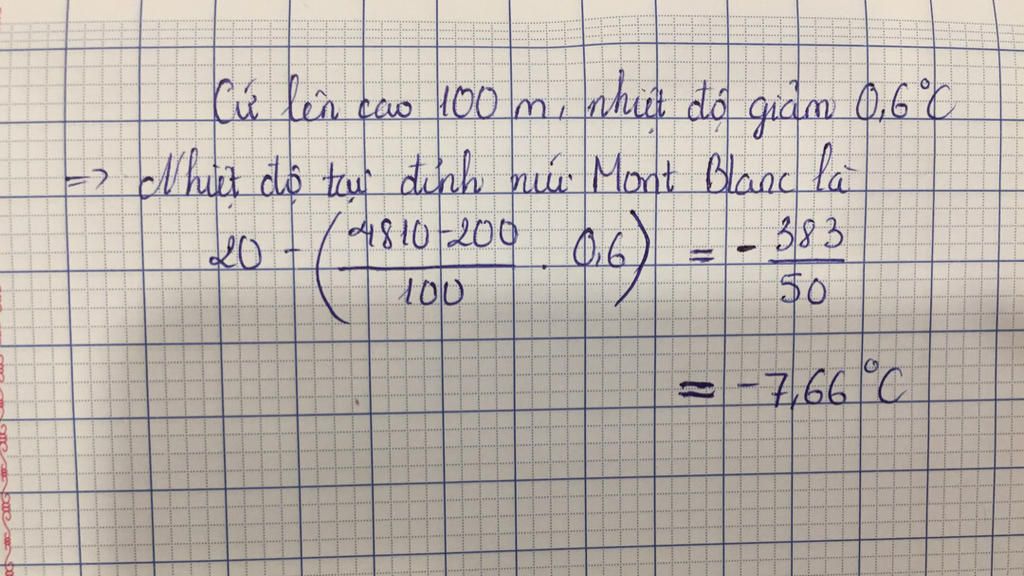 Cứ lên cao 100 m, nhiệt độ giảm 0,6°C
=> Nhiệt độ tại đỉnh núi Mont Blanc là
20 - (4810-200/100 . 0,6) = - 383/50
= -7,66°C